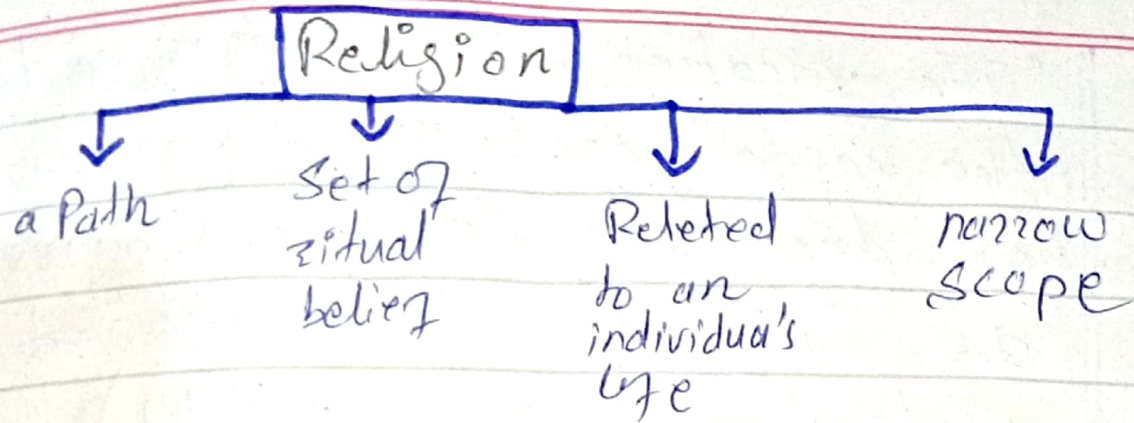 Religion
a Path
Set of
ritual
belief
Releted
to an
individua's
life
narrow
scope